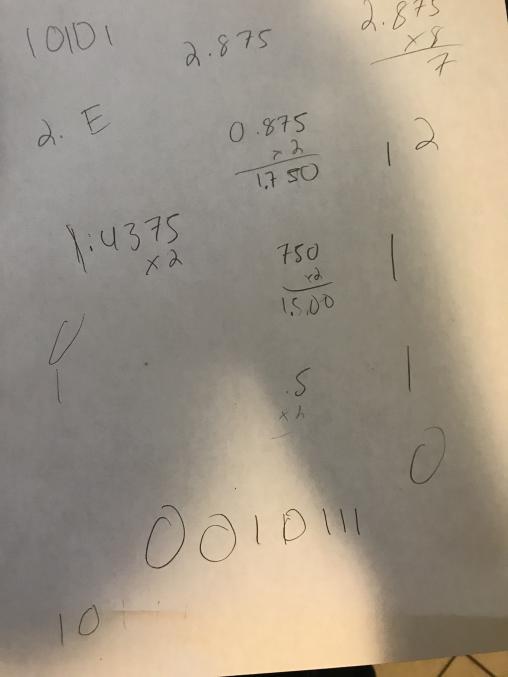 10101
2.875
2.875
x8
7
2. E
0.875
x2
1.750
1 2
1.4375
x2
750
x2
1.5.00
1
0
1
.5
x2
1
0
0010111
10